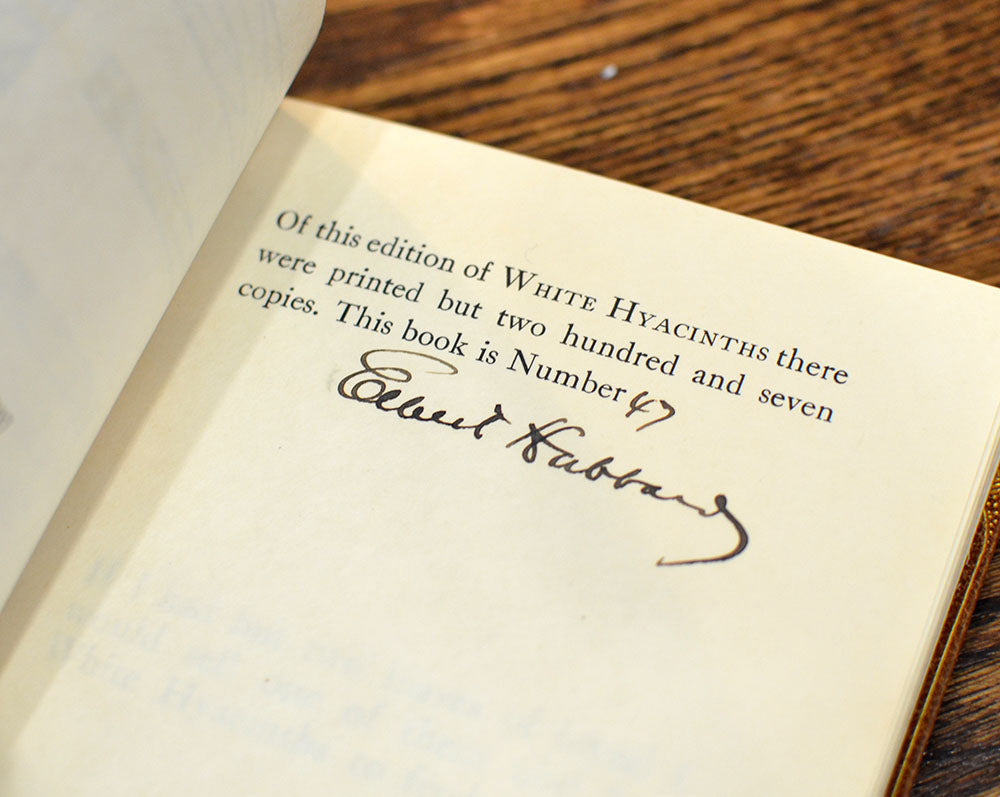 Of this edition of WHITE HYACINTHS there
were printed but two hundred and seven
copies. This book is Number 47
Elbert Hubbard